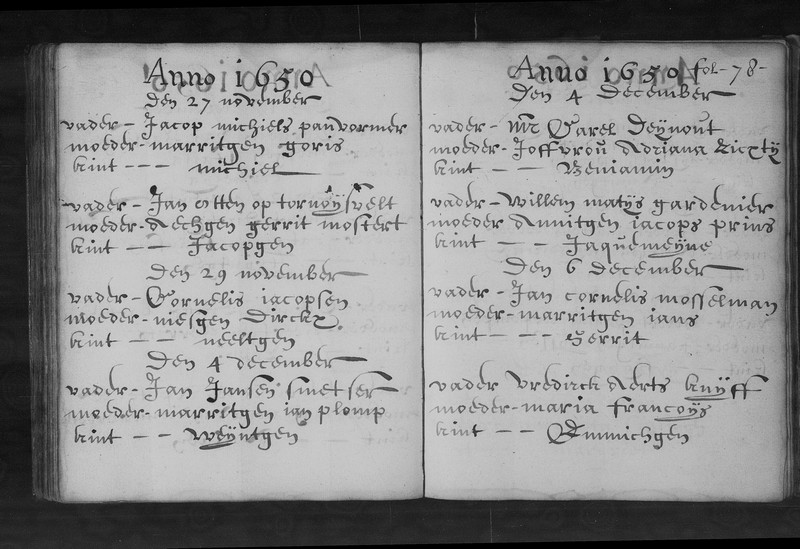 Anno 1650
Den 27 november
vader - Jacop michiels panvormer
moeder - marritgen goris
kint - - - michiel
vader - Jan otten op tornoysvelt
moeder - Aechgen gerrit mostert
kint - - Jacopgen
Den 29 november
vader - Cornelis iacopsen
moeder - niesgen Dirckx.
kint - - neeltgen
Den 4 december
vader - Jan Jansen smetser
moeder - marritgen ian plomp
kint - - weyntgen
Anno 1650 fol - 78 -
Den 4 December
vader - Mr Carel Deynout
moeder - Joffvrou Adriana
kint - - Beniamin
vader - Willem matys gardenier
moeder Annitgen iacops prins
kint - - Jaquemeyne
Den 6 december
vader - Jan cornelis mosselman
moeder - marritgen ians
kint - - Gerrit
vader Vredirck Aerts knyff
moeder - maria francoys
kint - - Emmichgen